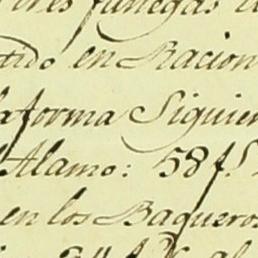 tres fanegas d
tido en Racion
la forma Siguien
l Alamo: 58 f.s
en los Baqueros